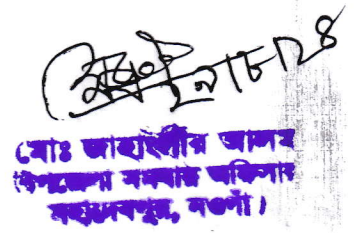 মোঃ জাহাংগীর আলম
উপজেলা সমবায় অফিসার
মহাদেবপুর, নওগাঁ।